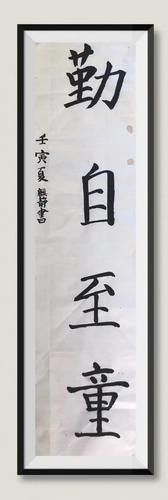 勤自至童
壬寅夏 静書